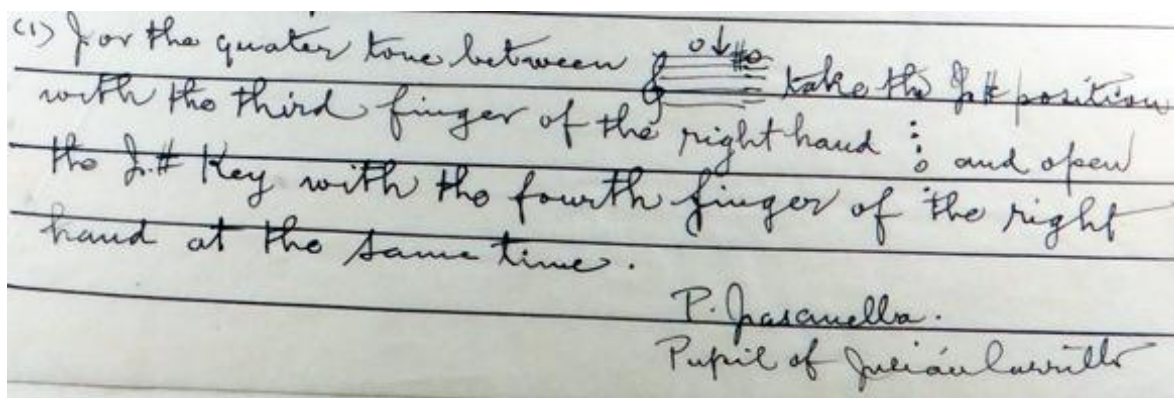 (1) For the quater tone between take the F# position
with the third finger of the right hand and open
the F.# Key with the fourth finger of the right
hand at the same time.
P.
Pupil of Julián Carrillo